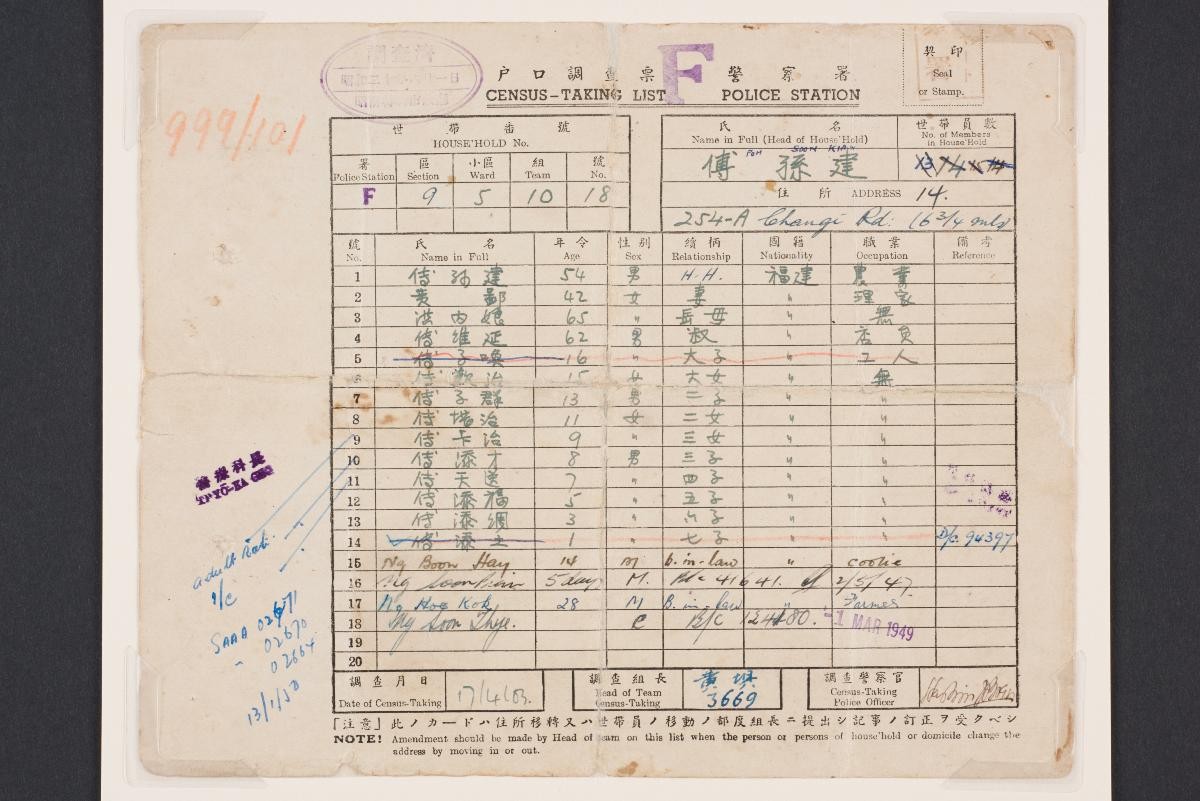 戸口調査票 F 警察署
CENSUS-TAKING LIST POLICE STATION
契印
Seal
or Stamp.
999/101
世帯番號
HOUSE'HOLD No.
署 區 小區 組 號
Police Station Section Ward Team No.
F 9 5 10 18
氏名
Name in Full (Head of House'Hold)
FOH SOON KIAN
傅孫建
世帯員數
No. of Members in House'Hold
14.
住所 ADDRESS
254-A Changi Rd: (6 3/4 mls)
號 氏名 年令 性別 續柄 國籍 職業 備考
No. Name in Full Age Sex Relationship Nationality Occupation Reference
1 建 54 男 H.H. 福建 農業
2 黄 42 女 妻 〃 理家
3 洪 娘 65 〃 岳母 〃 無
4 維延 62 男 淑 〃 店員
5 子喚 16 〃 大子 〃 工人
6 治 15 女 大女 〃 無
7 子群 13 男 二子 〃 〃
8 治 11 女 二女 〃 〃
9 卡治 9 〃 三女 〃 〃
10 添才 8 男 三子 〃 〃
11 天送 7 〃 四子 〃 〃
12 添福 5 〃 五子 〃 〃
13 添 3 〃 六子 〃 〃
14 添 1 〃 七子 〃 〃 D/c 94397
15 Ng Boon Hay 14 M b.in-law 〃 coolie
16 Ng Soon 5 days M. B/c 41641. of 2/5/47.
17 Ng Hoe Kok 28 M B.in-law 〃 Farmer
18 Ng Soon Thye. B/c 124180. -1 MAR 1949
19
20
醫療科長
adult Rat.
I/C
SAAA 02671
〃 02670
02664
13/1/50
調査月日
Date of Census-Taking 17/4/03.
調査組長
Head of Team
Census-Taking
黄 3669
調査警察官
Census-Taking
Police Officer
「注意」此ノカードハ住所移轉又ハ世帯員ノ移動ノ都度組長ニ提出シ記事ノ訂正ヲ受クベシ
NOTE! Amendment should be made by Head of team on this list when the person or persons of house'hold or domicile change the
address by moving in or out.